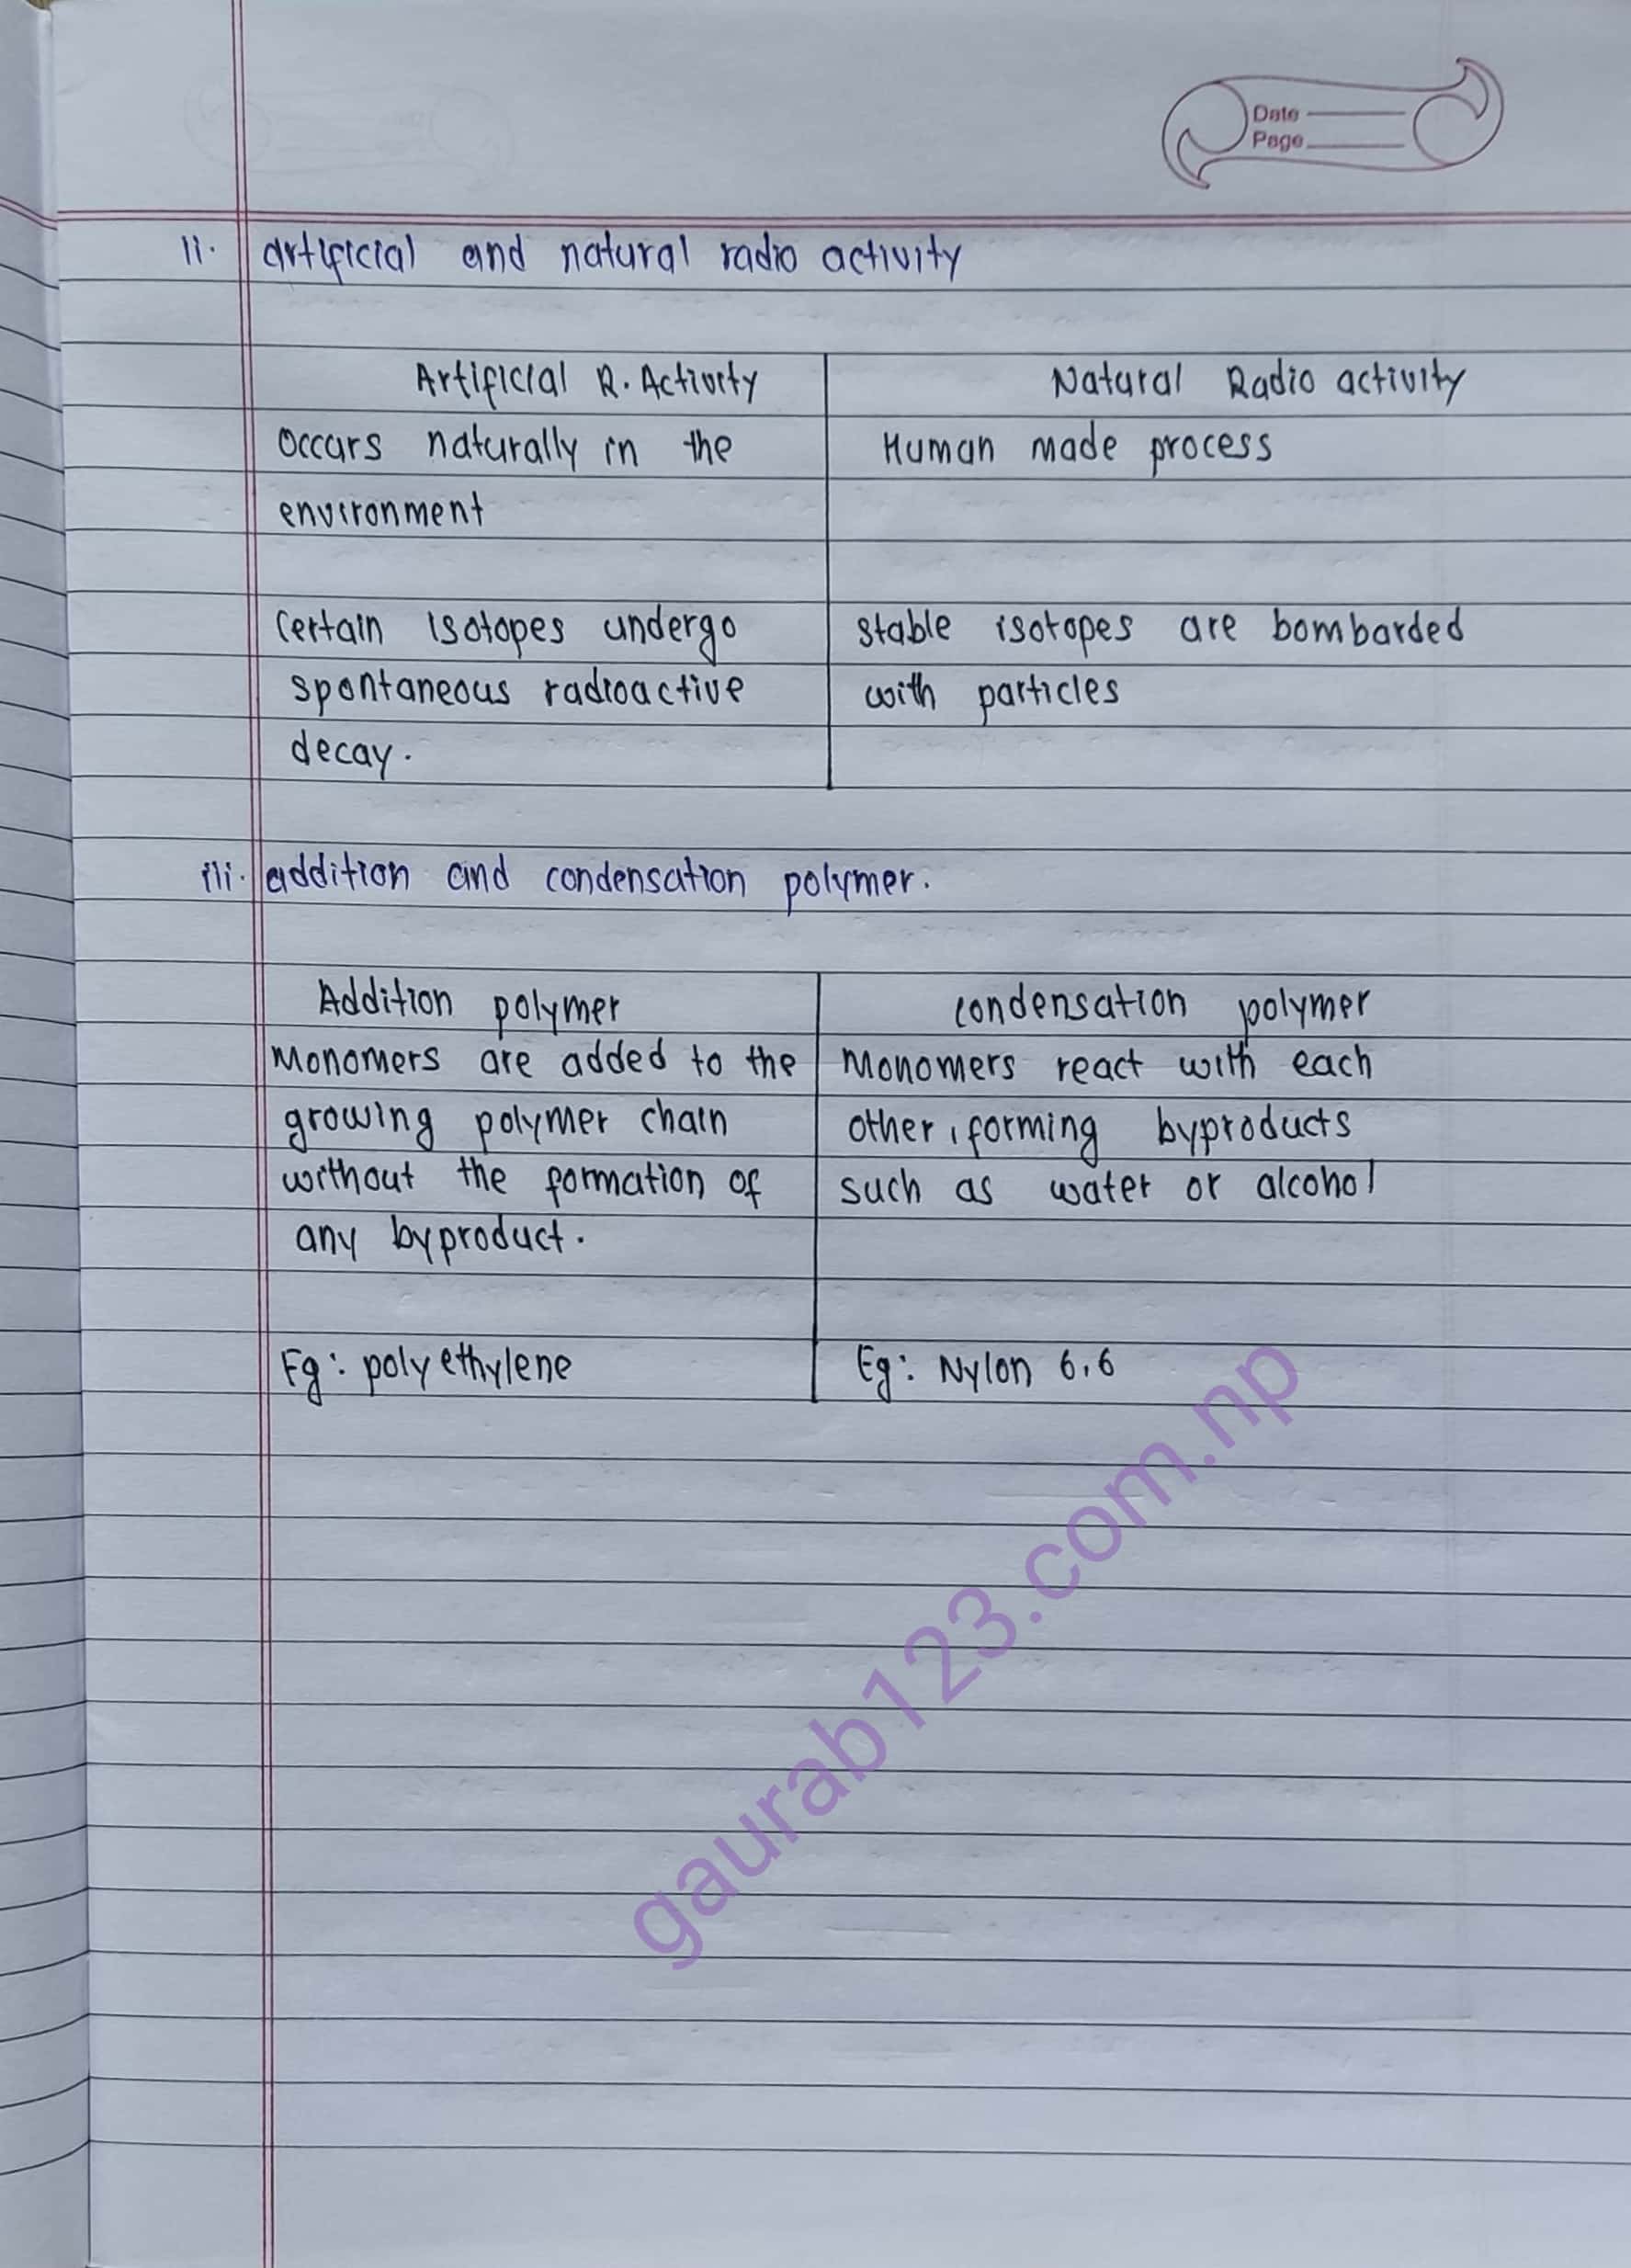 Date
Page
ii. artificial and natural radio activity
Artificial R. Activity | Natural Radio activity
Occars naturally in the | Human made process
environment
Certain isotopes undergo | stable isotopes are bombarded
spontaneous radioactive | with particles
decay.
iii. addition and condensation polymer.
Addition polymer | condensation polymer
Monomers are added to the | Monomers react with each
growing polymer chain | other, forming byproducts
without the formation of | such as water or alcohol
any byproduct.
Eg: polyethylene | Eg: Nylon 6,6
gaurab123.com.np